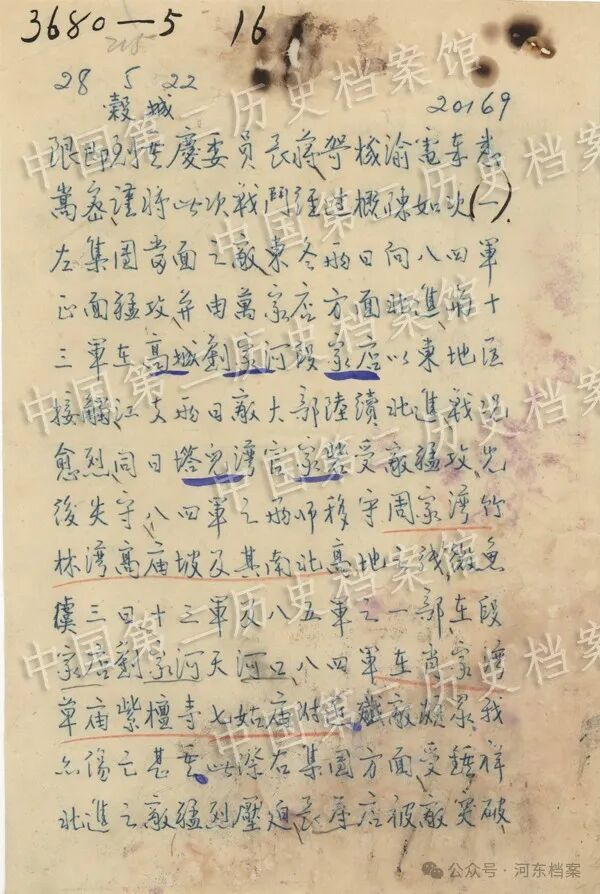 3680—5 16
215
28 5 22
穀城 20169
限即到重慶委員長蔣 機渝電奉悉
萬密謹將此次戰鬥經過概陳如次(一)
左集團當面之敵東冬兩日向八四軍
正面猛攻并由萬家店方面北進與十
三軍在高城劉家河段家店以東地區
接觸江支兩日敵大部陸續北進戰況
愈烈同日塔兒灣官家砦受敵猛攻先
後失守八四軍之兩師移守周家灣竹
林灣高庙坡及其南北高地之线 魚
虞三日十三軍及八五軍之一部在段
家店劉家河天河口八四軍在尚家灣
草庙紫檀寺七姑庙附近殲敵頗眾我
亦傷亡甚重此際右集團方面受鍾祥
北進之敵猛烈壓迫長壽店被敵突破
中国第二历史档案馆
公众号·河东档案